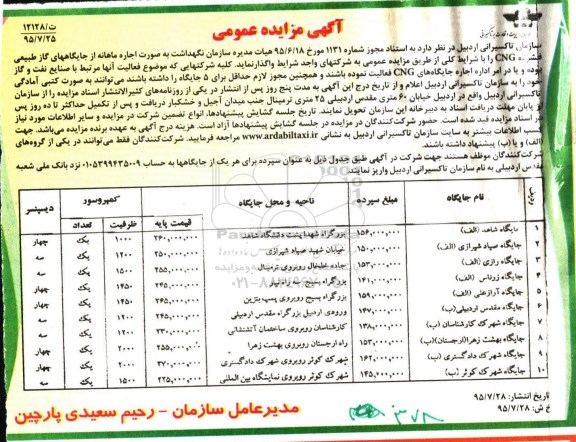 ت/۱۲۱۲۸
۹۵/۷/۲۵
آگهی مزایده عمومی
سازمان تاکسیرانی اردبیل در نظر دارد به استناد مجوز شماره ۱۱۳۱ مورخ ۹۵/۶/۱۸ هیات مدیره سازمان نگهداشت به صورت اجاره ماهانه از جایگاههای گاز طبیعی
فشرده CNG را با کسب کلی از طریق مزایده عمومی به شرکتهای واجد شرایط واگذار نماید. کلیه شرکتهایی که موضوع فعالیت آنها مرتبط با صنایع نفت و گاز
بوده و یا در امر اداره اجاره جایگاههای CNG فعالیت نموده باشند و همچنین مجوز لازم حداقل برای ۵ جایگاه را داشته باشند می‌توانند به صورت کتبی آمادگی
خود را به سازمان تاکسیرانی اردبیل اعلام و از تاریخ درج این آگهی به مدت پنج روز پس از انتشار در یکی از روزنامه‌های کثیرالانتشار اسناد مزایده را از سازمان
تاکسیرانی اردبیل واقع در اردبیل خیابان ۶۰ متری مقدس اردبیلی ۲۵ متری ترمینال جنب میدان آجیل و خشکبار دریافت و پس از تکمیل حداکثر تا ده روز پس
از پایان مهلت دریافت اسناد به دبیرخانه این سازمان تحویل نمایند. تاریخ جلسه گشایش پیشنهادها، انواع تضمین شرکت در مزایده و سایر اطلاعات مورد نیاز
در اسناد مزایده قید شده است. حضور شرکت‌کنندگان در مزایده در جلسه گشایش پیشنهادها آزاد است. هزینه درج آگهی به عهده برنده مزایده می‌باشد. جهت
کسب اطلاعات بیشتر به سایت سازمان تاکسیرانی اردبیل به نشانی www.ardabiltaxi.ir مراجعه فرمایید. شرکت‌کنندگان فقط می‌توانند در یکی از گروه‌های
(الف) و یا (ب) پیشنهاد داشته باشند.
شرکت‌کنندگان موظف هستند جهت شرکت در آگهی طبق جدول ذیل به عنوان سپرده برای هر یک از جایگاهها به حساب ۰۱۰۵۳۹۹۴۳۵۰۰۹ نزد بانک ملی شعبه
مقدس اردبیلی به نام سازمان تاکسیرانی اردبیل واریز نمایند.
ردیف نام جایگاه مبلغ سپرده ناحیه و محل جایگاه قیمت پایه کمپروسور ظرفیت تعداد دیسپنسر
۱ جایگاه شاهد (الف) ۱۵۶,۰۰۰,۰۰۰ بزرگراه شهدا پشت دانشگاه شاهد ۲۶۰,۰۰۰,۰۰۰ ۱۰۰۰ یک چهار
۲ جایگاه صیاد شیرازی (الف) ۱۵۰,۰۰۰,۰۰۰ خیابان شهید صیاد شیرازی ۲۵۰,۰۰۰,۰۰۰ ۱۲۰۰ یک سه
۳ جایگاه رازی (الف) ۱۵۳,۰۰۰,۰۰۰ روبروی ترمینال ۲۵۵,۰۰۰,۰۰۰ ۱۵۰۰ یک سه
۴ جایگاه زوناس (الف) ۱۴۱,۰۰۰,۰۰۰ بزرگراه بسیج ۲۴۵,۰۰۰,۰۰۰ ۱۴۵۰ یک چهار
۵ جایگاه آرازعلی (الف) ۱۵۹,۰۰۰,۰۰۰ بزرگراه بسیج روبروی پمپ بنزین ۲۶۵,۰۰۰,۰۰۰ ۱۴۵۰ یک چهار
۶ جایگاه مقدس اردبیلی (ب) ۱۴۷,۰۰۰,۰۰۰ ورودی اردبیل بزرگراه مقدس اردبیلی ۲۴۵,۰۰۰,۰۰۰ ۱۲۰۰ یک سه
۷ جایگاه شهرک کارشناسان (ب) ۱۳۸,۰۰۰,۰۰۰ کارشناسان روبروی ساختمان آتشنشانی ۲۳۰,۰۰۰,۰۰۰ ۱۲۰۰ یک سه
۸ جایگاه بهشت زهرا(ارجستان)(ب) ۱۵۳,۰۰۰,۰۰۰ راه ارجستان روبروی بهشت زهرا ۲۵۵,۰۰۰,۰۰۰ ۲۰۰۰ یک چهار
۹ جایگاه شهرک دادگستری (ب) ۱۶۲,۰۰۰,۰۰۰ شهرک کوثر روبروی شهرک دادگستری ۲۷۰,۰۰۰,۰۰۰ یک چهار
۱۰ جایگاه شهرک کوثر (ب) ۱۳۵,۰۰۰,۰۰۰ شهرک کوثر روبروی نمایشگاه بین المللی ۲۲۵,۰۰۰,۰۰۰ ۱۵۰۰ یک سه
تاریخ انتشار: ۹۵/۷/۲۸
خ ش: ۹۵/۷/۲۸
مدیرعامل سازمان - رحیم سعیدی پارچین